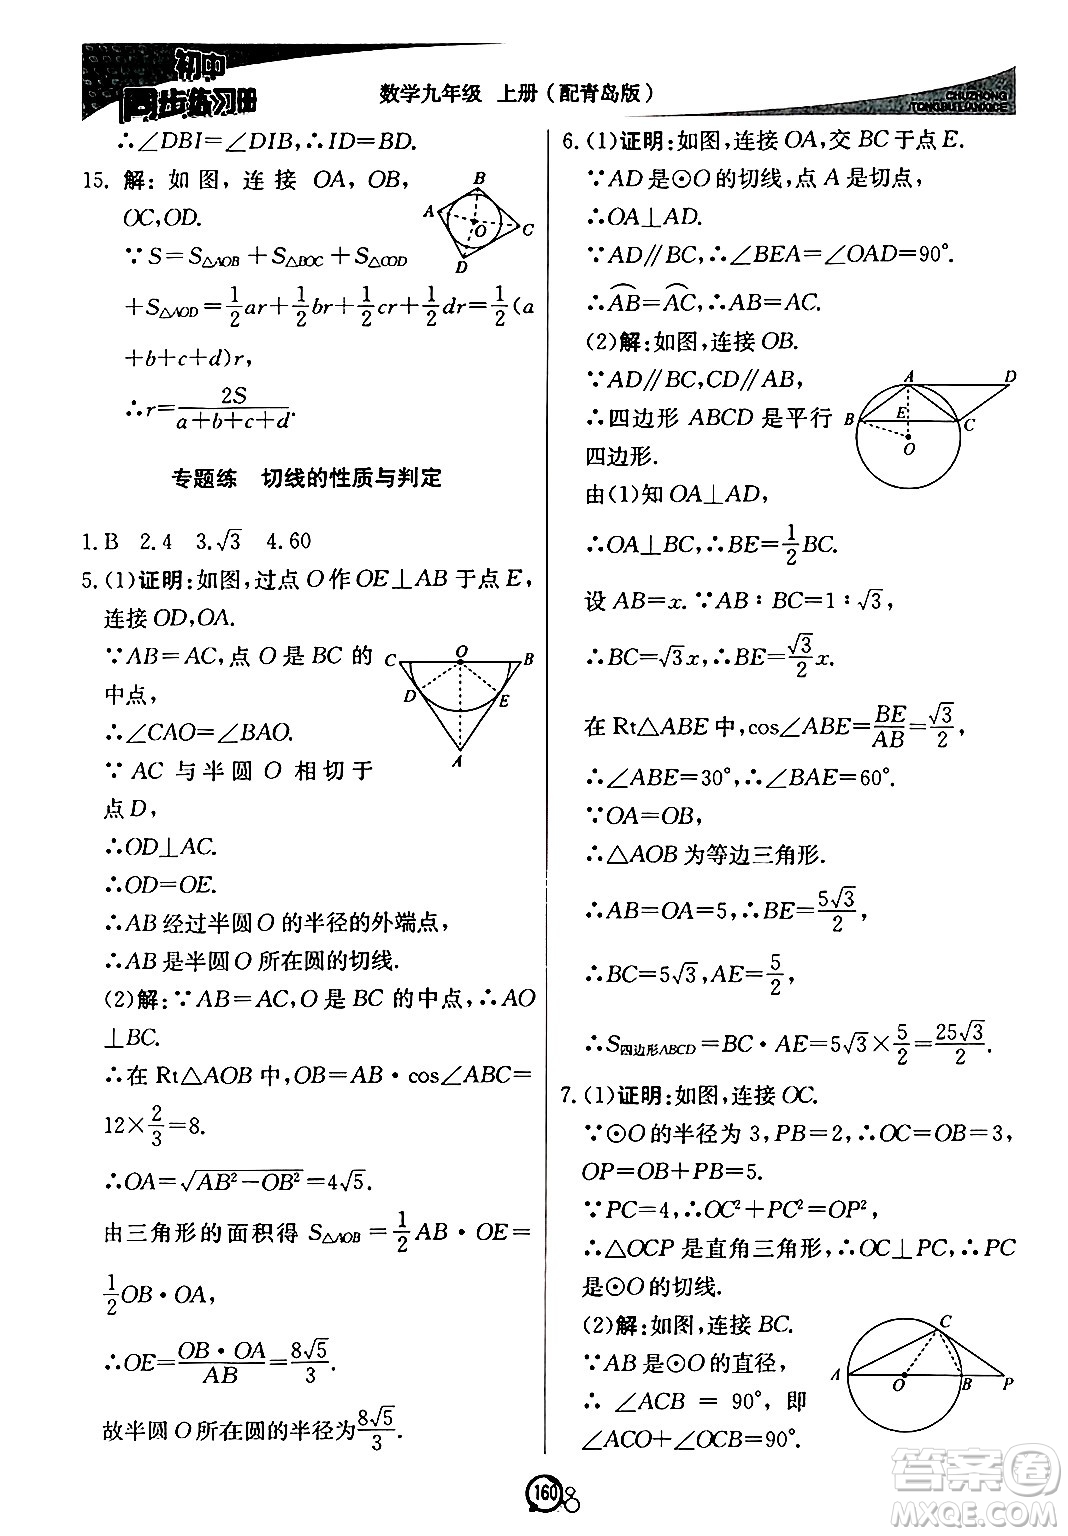 初中
同步练习册
数学九年级 上册(配青岛版)
CHUZHONG
TONGBULIANXICE
∴∠DBI=∠DIB,∴ID=BD.
15. 解:如图,连接 OA,OB,
OC,OD.
∵S=S△AOB+S△BOC+S△COD
+S△AOD=1/2 ar+1/2 br+1/2 cr+1/2 dr=1/2(a
+b+c+d)r,
∴r=2S/(a+b+c+d).
A B C D O
专题练 切线的性质与判定
1.B 2.4 3.√3 4.60
5.(1)证明:如图,过点 O 作 OE⊥AB 于点 E,
连接 OD,OA.
∵AB=AC,点 O 是 BC 的
中点,
∴∠CAO=∠BAO.
∵AC 与半圆 O 相切于
点 D,
∴OD⊥AC.
∴OD=OE.
∴AB 经过半圆 O 的半径的外端点,
∴AB 是半圆 O 所在圆的切线.
C O B D E A
(2)解:∵AB=AC,O 是 BC 的中点,∴AO
⊥BC.
∴在 Rt△AOB 中,OB=AB·cos∠ABC=
12×2/3=8.
∴OA=√(AB²-OB²)=4√5.
由三角形的面积得 S△AOB=1/2 AB·OE=
1/2 OB·OA,
∴OE=OB·OA/AB=8√5/3.
故半圆 O 所在圆的半径为8√5/3.
6.(1)证明:如图,连接 OA,交 BC 于点 E.
∵AD 是⊙O 的切线,点 A 是切点,
∴OA⊥AD.
∵AD∥BC,∴∠BEA=∠OAD=90°.
∴⌒AB=⌒AC,∴AB=AC.
(2)解:如图,连接 OB.
∵AD∥BC,CD∥AB,
∴四边形 ABCD 是平行
四边形.
由(1)知 OA⊥AD,
∴OA⊥BC,∴BE=1/2 BC.
A D B E C O
设 AB=x.∵AB∶BC=1∶√3,
∴BC=√3x,∴BE=√3/2 x.
在 Rt△ABE 中,cos∠ABE=BE/AB=√3/2,
∴∠ABE=30°,∴∠BAE=60°.
∵OA=OB,
∴△AOB 为等边三角形.
∴AB=OA=5,∴BE=5√3/2,
∴BC=5√3,AE=5/2,
∴S四边形ABCD=BC·AE=5√3×5/2=25√3/2.
7.(1)证明:如图,连接 OC.
∵⊙O 的半径为 3,PB=2,∴OC=OB=3,
OP=OB+PB=5.
∵PC=4,∴OC²+PC²=OP²,
∴△OCP 是直角三角形,∴OC⊥PC,∴PC
是⊙O 的切线.
(2)解:如图,连接 BC.
∵AB 是⊙O 的直径,
∴∠ACB=90°,即
∠ACO+∠OCB=90°.
C A O B P
160
答案圈
MXQE.COM